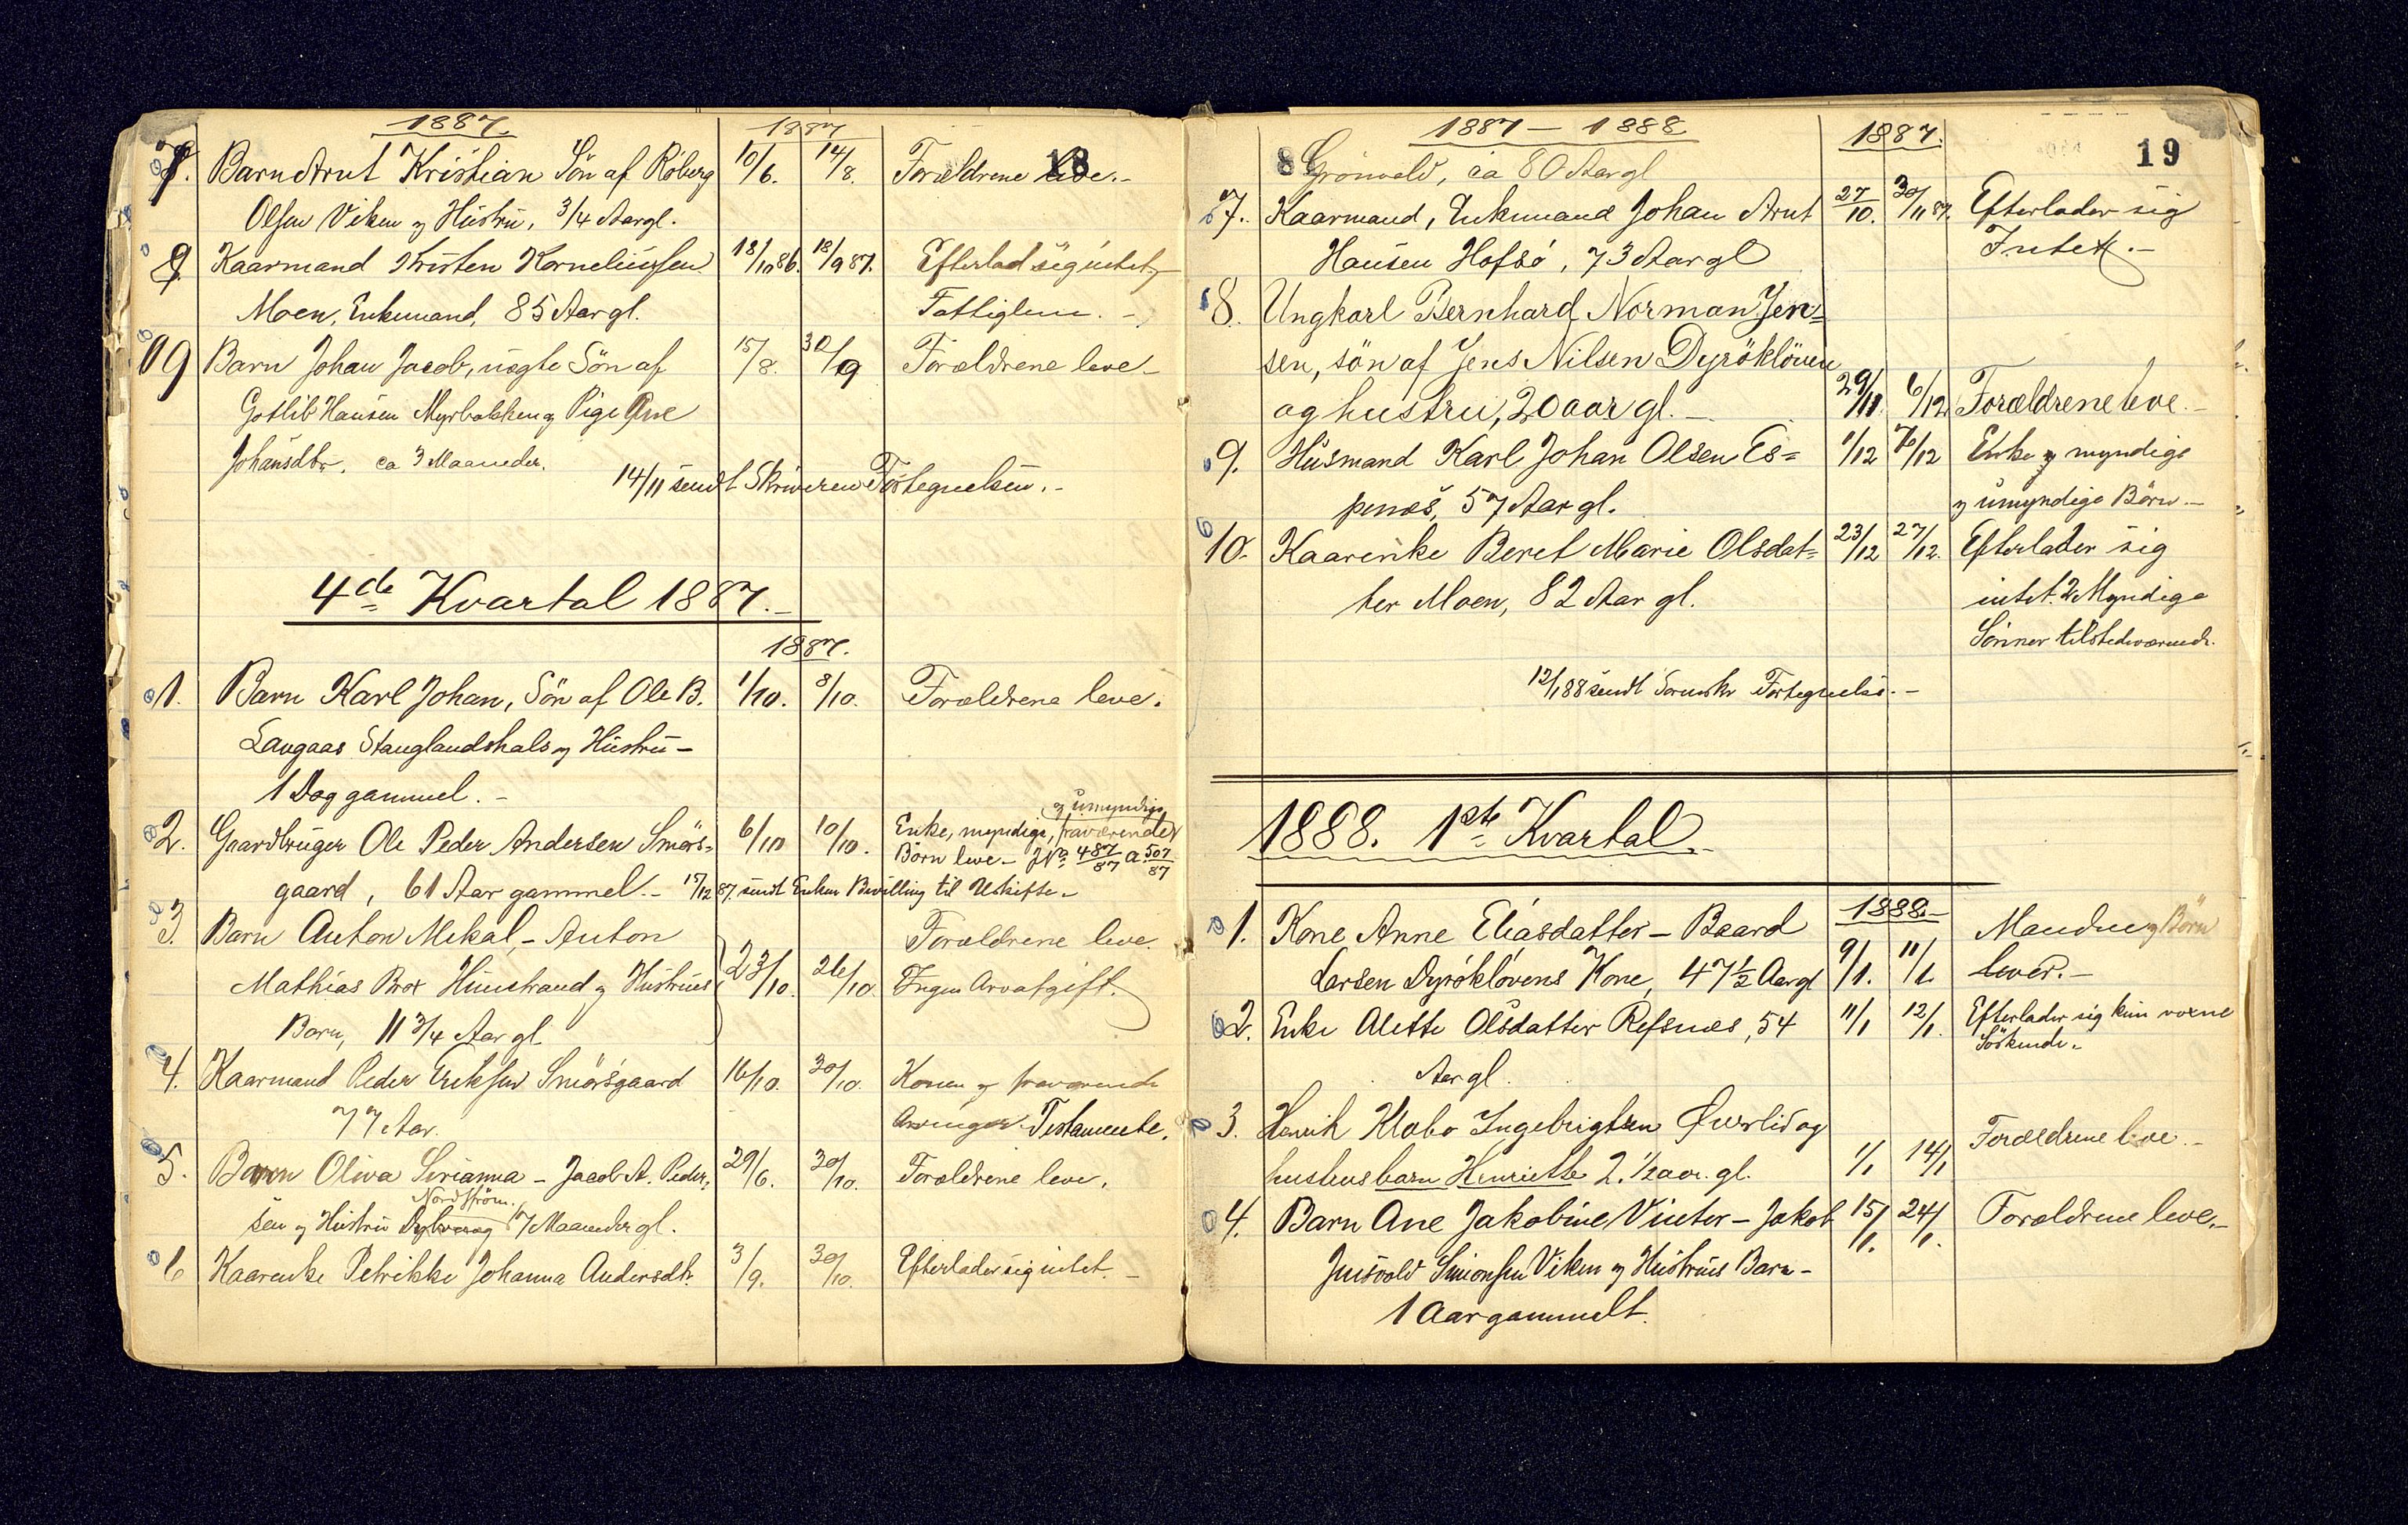 1887.
1887
7. Barn Arnt Kristian Sön af Röberg 10/6. 14/8. Forældrene leve.-
18
Olsen Viken og Hustru, 3/4 Aargl.
8 Kaarmand Kristen Korneliussen 18/10 86. 18/9 87. Efterlod sig intet,
Moen, Enkemand, 85 Aar gl. Fattiglem. -
9 Barn Johan Jacob, uægte Sön af 15/8. 30/9 Forældrene leve -
Gotlib Hansen Myrbakken og Pige Ane
Johansdtr. ca 3 Maaneder.
14/11 sendt Skriveren Fortegnelsen.-
4de Kvartal 1887.-
1887.
1. Barn Karl Johan, Sön af Ole B. 1/10. 8/10. Forældrene leve.
Langaas Stanglandshals og Hustru -
1 Dag gammel. -
2. Gaardbruger Ole Peder Andersen Smörs= 6/10 10/10. Enke, myndige, fraværende
og umyndige
Börn leve - JNo 487/87 a 507/87
gaard, 61 Aar gammel. - 15/12 87. sendt Enken Bevilling til Uskifte -
3. Barn Anton Mikal, - Anton Forældrene leve.
Mathias Brox Hunstrand og Hustrus 23/10. 26/10. Ingen Arvafgift.
Barn, 11 3/4 Aar gl.
4. Kaarmand Peder Eriksen Smörsgaard 16/10. 30/10. Konen og fraværende
77 Aar. Arvinger. Testamente.
5. Barn Oliva Sirianna - Jacob A. Peder= 29/6. 30/10. Forældrene leve.
Nordström.
sen og Hustru 7 Maaneder gl.
6 Kaarenke Petrikke Johanna Andersdtr. 3/9. 30/10. Efterlader sig intet. -
1887 - 1888
1887.
19
8 Grönvold, ca 80 Aar gl
7. Kaarmand, Enkemand Johan Arnt 27/10. 30/11 87. Efterlader sig
Hansen Hofsö, 73 Aar gl Intet. -
8. Ungkarl Bernhard Norman Jen=
sen, sön af Jens Nilsen Dyröklöven
og hustru, 20 aar gl. - 29/11. 6/12 Forældrene leve. -
9. Husmand Karl Johan Olsen Es= 1/12 7/12 Enke og myndige
penæs, 57 Aar gl. og umyndige Börn. -
10. Kaarenke Beret Marie Olsdat= 23/12 27/12. Efterlader sig
ter Moen, 82 Aar gl. intet. 2 Myndige
Sönner tilstedeværende.
12/1 88 sendt Sorenskr Fortegnelse. -
1888. 1ste Kvartal.
1888.-
1. Kone Anne Eliasdatter - Baard Manden og Börn
Larsen Dyröklövens Kone, 47 1/2 Aar gl 9/1. 11/1 lever. -
2. Enke Alette Olsdatter Refsnæs, 54 11/1 12/1. Efterlader sig kun voxne
Söskende.
Aar gl.
3. Henrik Klabo Ingebrigtsen Øverli og Forældrene leve. -
hustrus barn Henriette 2 1/2 aar. gl. 1/1 14/1
4. Barn Ane Jakobine Vinter - Jakob 15/1. 24/1. Forældrene leve. -
Simonsen Viken og Hustrus Barn -
1 Aar gammelt.